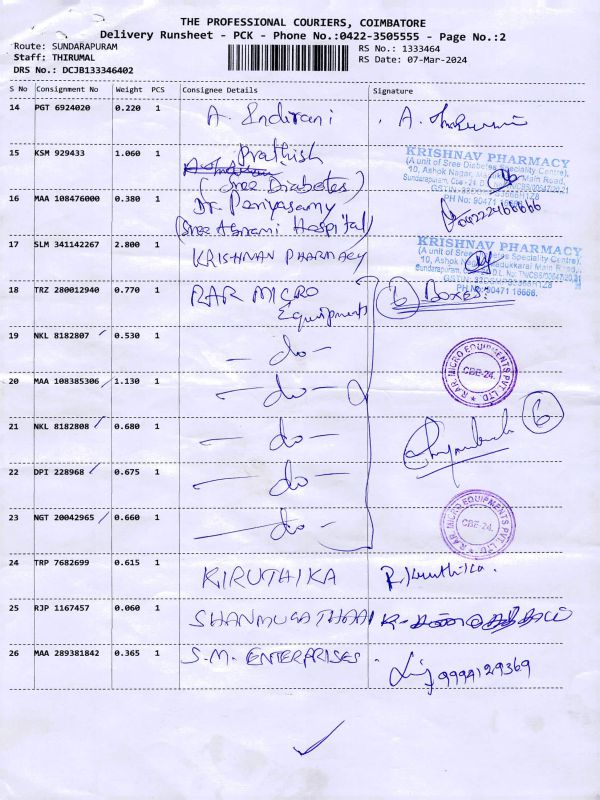 THE PROFESSIONAL COURIERS, COIMBATORE
Delivery Runsheet - PCK - Phone No.:0422-3505555 - Page No.:2
Route: SUNDARAPURAM
Staff: THIRUMAL
DRS No.: DCJB133346402
RS No.: 1333464
RS Date: 07-Mar-2024
S No Consignment No Weight PCS Consignee Details Signature
14 PGT 6924020 0.220 1 A. Indirani A.
15 KSM 929433 1.060 1 Prathish
(Sree Diabetes)
KRISHNAV PHARMACY
(A unit of Sree Diabetes Speciality Centre),
10, Ashok Nagar, Main Road,
Sundarapuram, Cbe - 24
PH No: 90471 16666.
16 MAA 108476000 0.380 1 Dr. Periyasamy
(Sree Abirami Hospital)
17 SLM 341142267 2.800 1 KRISHNAN PHARMACY
KRISHNAV PHARMACY
(A unit of Sree Diabetes Speciality Centre),
10, Ashok Nagar, Madukkarai Main Road,
Sundarapuram,
90471 16666.
18 TRZ 280012940 0.770 1 RAR MICRO
Equipments
(6) Boxes.
19 NKL 8182807 0.530 1 - do -
RAR MICRO EQUIPMENTS PVT LTD
CBE-24.
20 MAA 108385306 1.130 1 - do -
21 NKL 8182808 0.680 1 - do - 6
22 DPI 228968 0.675 1 - do -
23 NGT 20042965 0.660 1 - do -
RAR MICRO EQUIPMENTS PVT LTD
CBE-24.
24 TRP 7682699 0.615 1 KIRUTHIKA R. Kiruthika.
25 RJP 1167457 0.060 1 SHANMUGATHAAI
26 MAA 289381842 0.365 1 S.M. ENTERPRISES. 9994129369